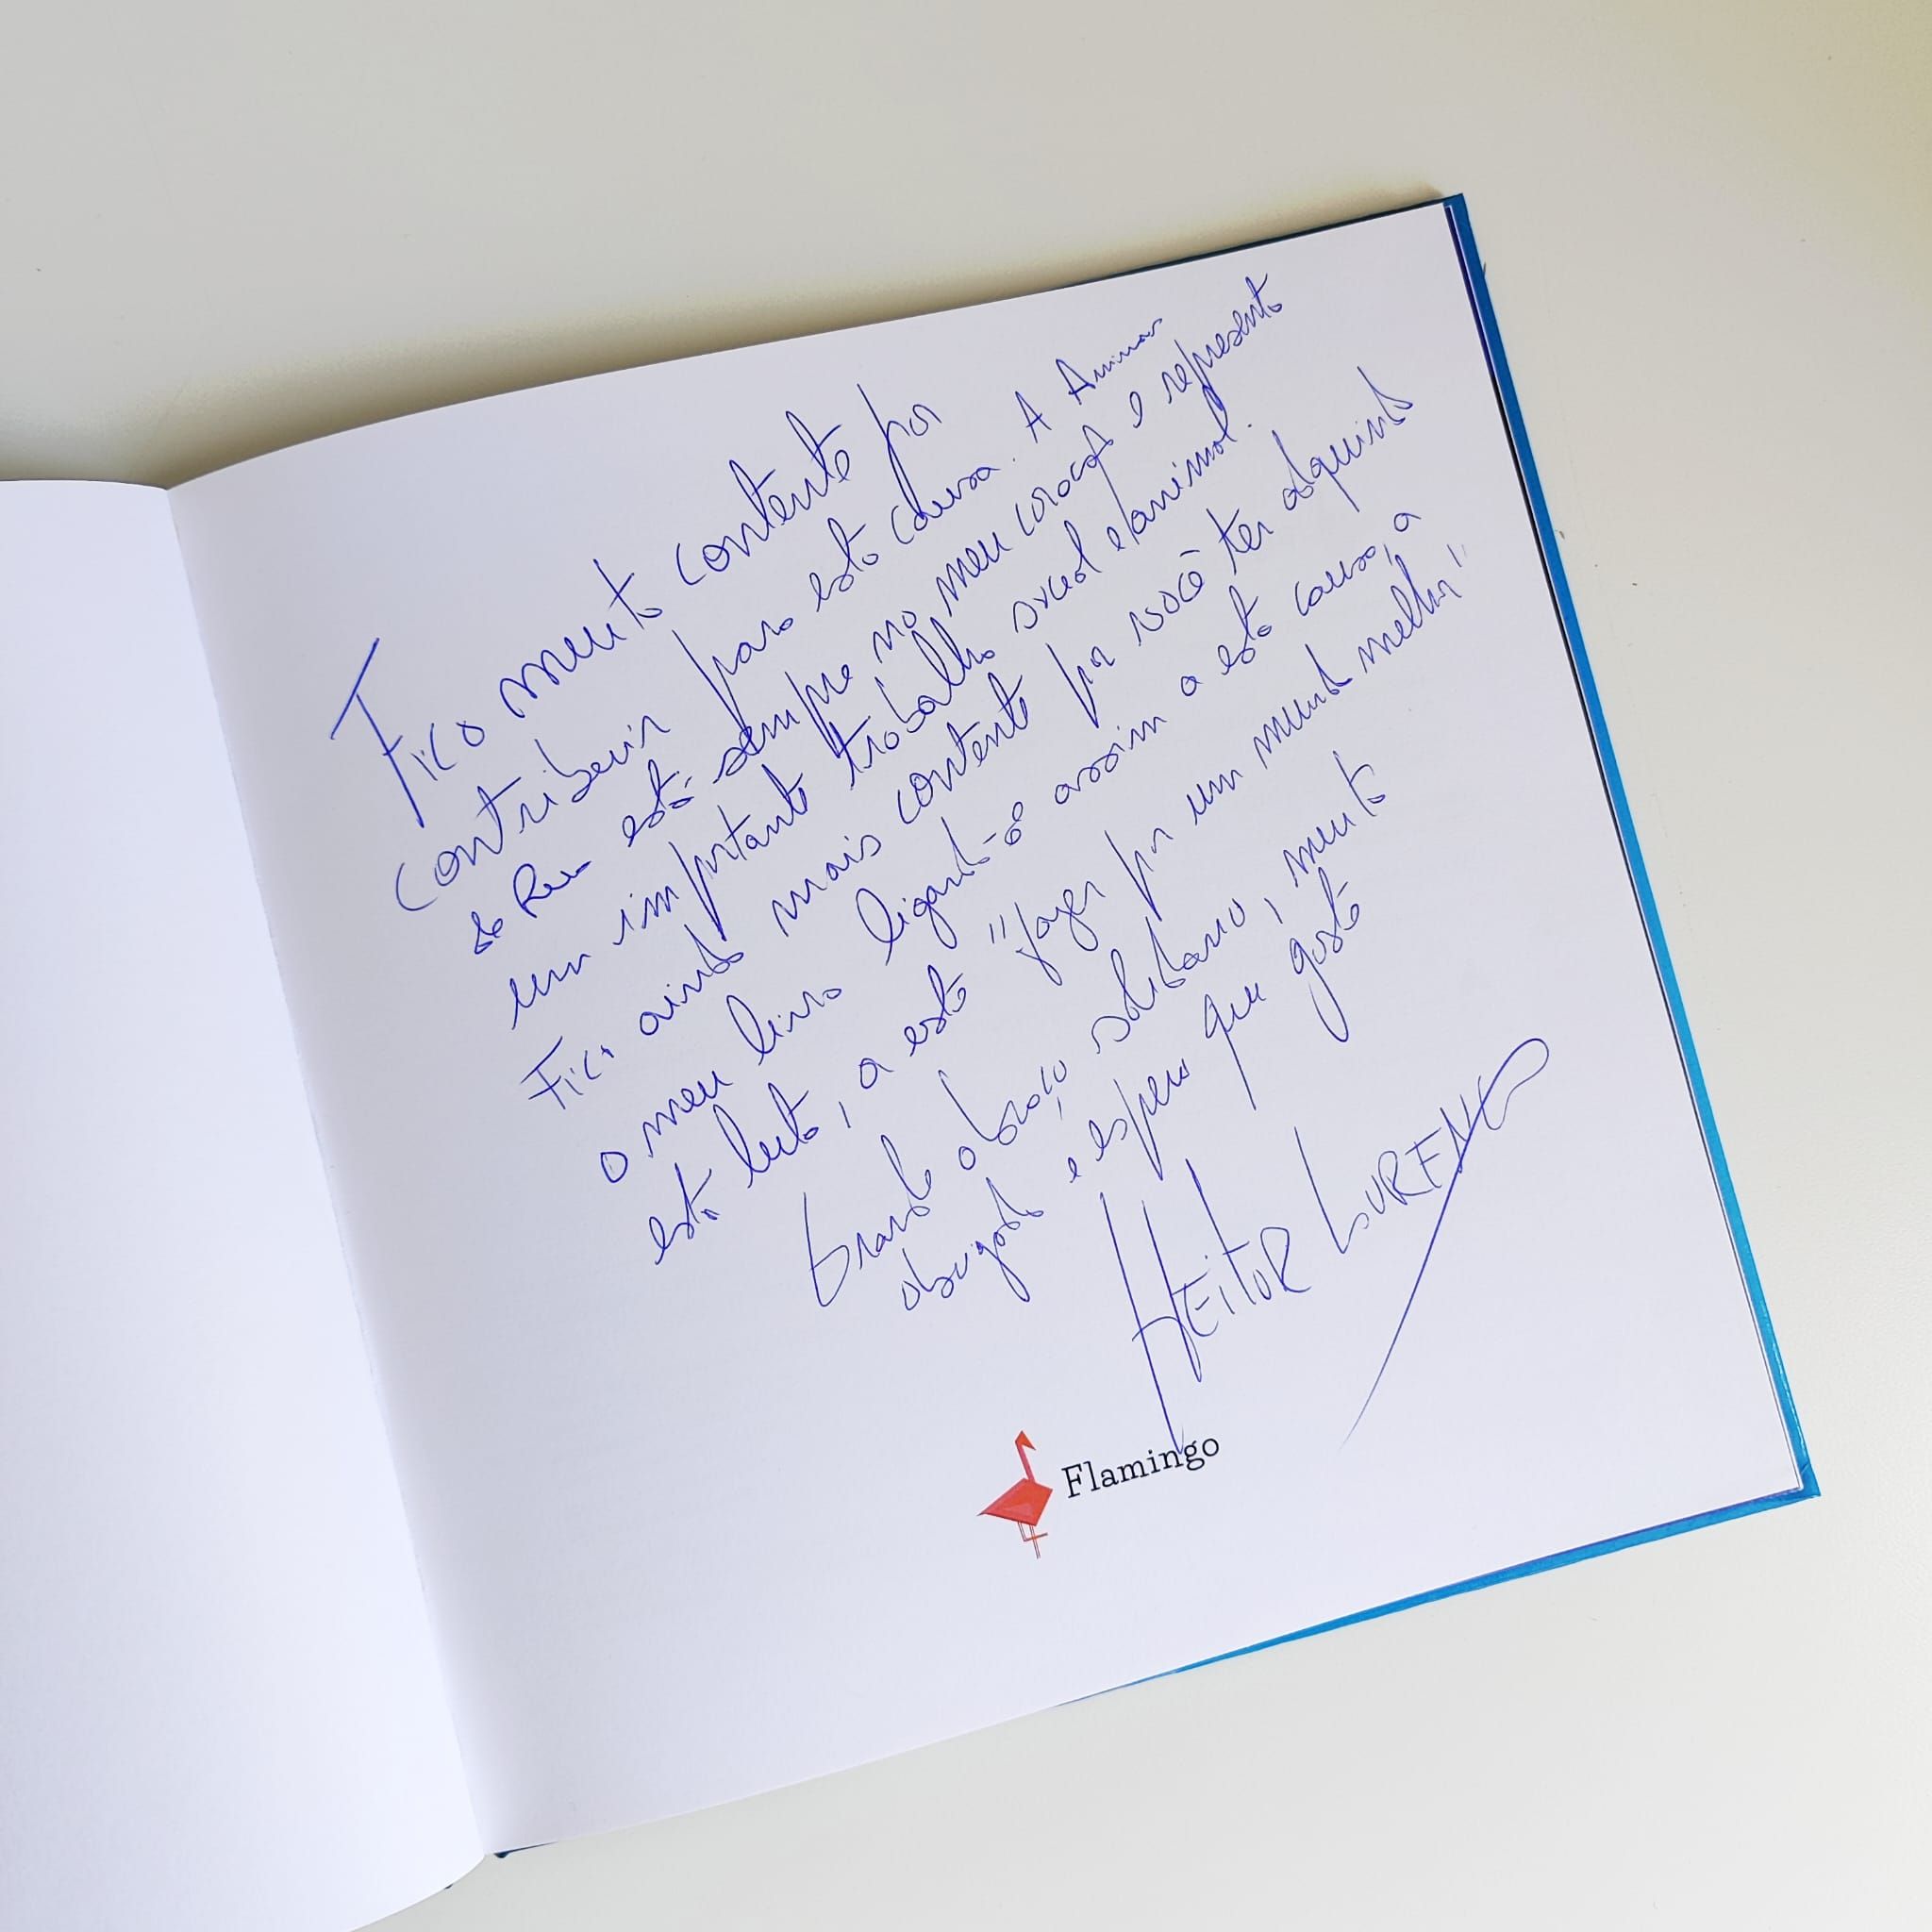 Fico muito contente por
contribuir para esta causa. A Animais
de Rua está sempre no meu coração e representa
um importante trabalho social e animal.
Fico ainda mais contente por você ter adquirido
o meu livro ligando-se assim a esta causa, a
esta luta, a este "fazer por um mundo melhor"
Grande abraço solidário, muito
obrigado e espero que goste
HEITOR LOURENÇO
Flamingo